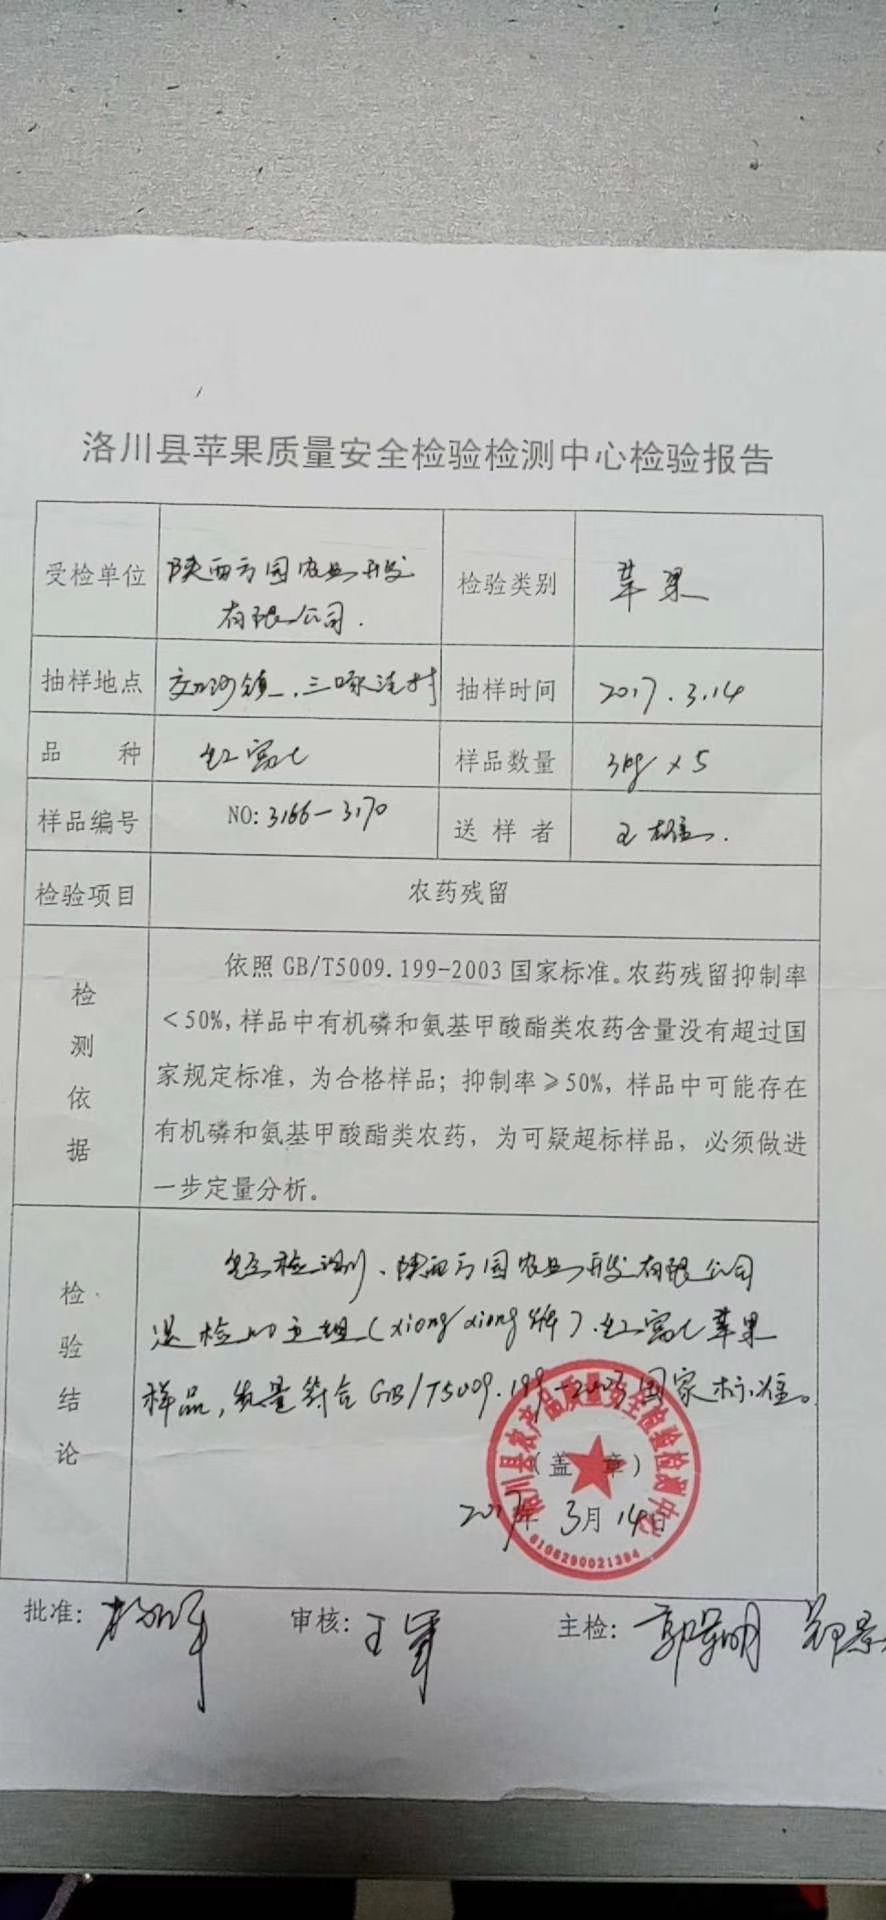 洛川县苹果质量安全检验检测中心检验报告
受检单位 陕西方园农业开发有限公司. 检验类别 苹果
抽样地点 交口河镇. 抽样时间 2017.3.14
品 种 红富士 样品数量 3kg×5
样品编号 NO:3166-3170 送样者 王雄.
检验项目 农药残留
检测依据
依照 GB/T5009.199-2003 国家标准。农药残留抑制率
<50%,样品中有机磷和氨基甲酸酯类农药含量没有超过国
家规定标准，为合格样品；抑制率≥50%，样品中可能存在
有机磷和氨基甲酸酯类农药，为可疑超标样品，必须做进
一步定量分析。
检验结论
经检测、陕西方园农业开发有限公司
送检的 (xiong xiong 牌).红富士苹果
样品,质量符合GB/T5009.199-2003国家标准。
(盖 章)
2017年 3月 14日
洛川县农产品质量安全检验检测中心
6106290021384
批准: 审核:王军 主检:郭景明